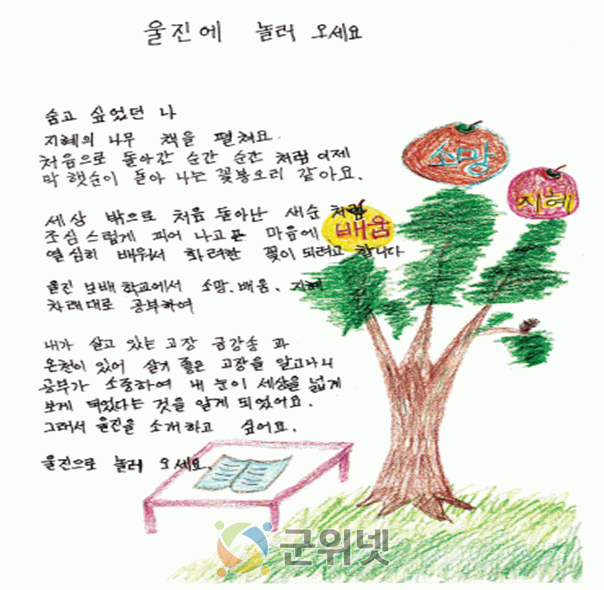 울진에 놀러 오세요
숨고 싶었던 나
지혜의 나무 책을 펼쳐요.
처음으로 돌아간 순간 순간 처럼 이제
막 햇순이 돋아 나는 꽃봉오리 같아요.
세상 밖으로 처음 돋아난 새순 처럼
조심 스럽게 피어 나고픈 마음에
열심히 배워서 화려한 꽃이 되려고 합니다
울진 보배 학교에서 소망. 배움. 지혜
차례대로 공부하여
내가 살고 있는 고장 금강송 과
온천이 있어 살기 좋은 고장을 알고나니
공부가 소중하여 내 눈이 세상을 넓게
보게 되었다는 것을 알게 되었어요.
그래서 울진을 소개하고 싶어요.
울진으로 놀러 오세요.
소망
지혜
배움
군위넷